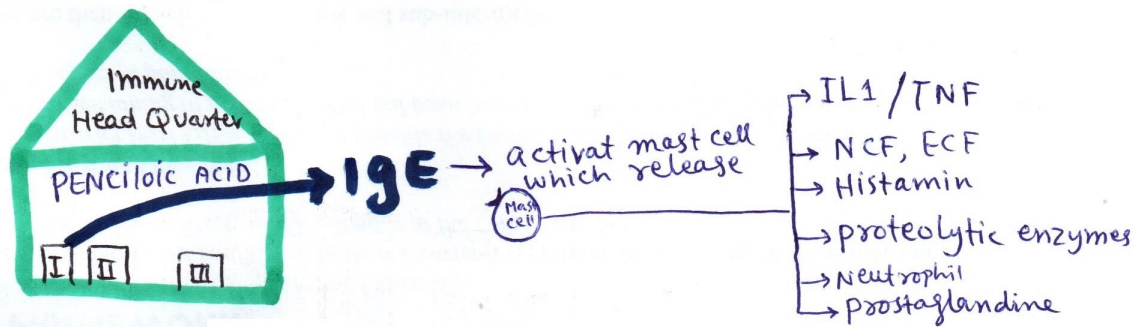 Immune
Head Quarter
PENCiloic ACID
I II III
IgE
activat mast cell
which release
Mast
cell
IL1 / TNF
NCF, ECF
Histamin
proteolytic enzymes
Neutrophil
prostaglandine